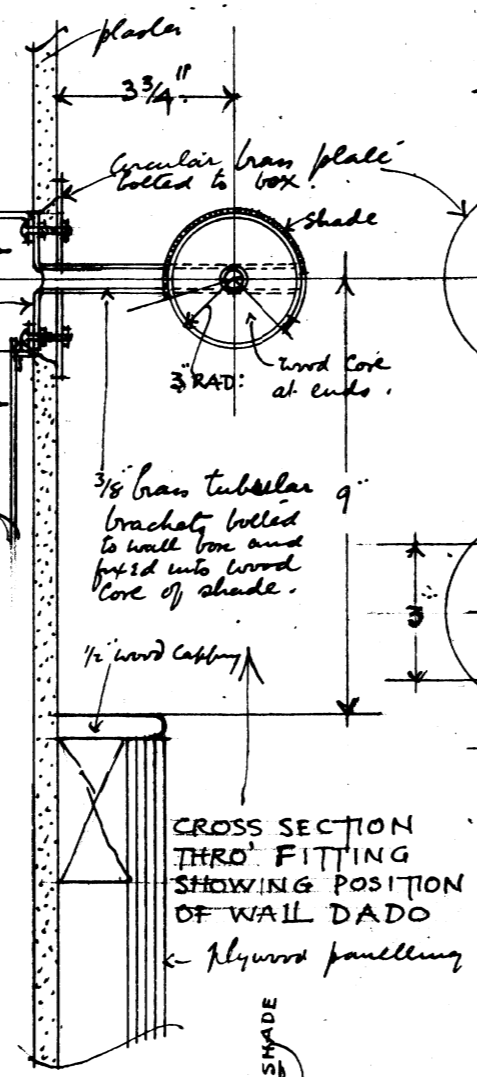 plaster
3 3/4"
Circular brass plate
bolted to box.
shade
3" RAD:
wood core
at ends.
3/8" brass tubular
brackets bolted
to wall box and
fixed into wood
core of shade.
9"
3"
1/2" wood capping
CROSS SECTION
THRO' FITTING
SHOWING POSITION
OF WALL DADO
plywood panelling
SHADE